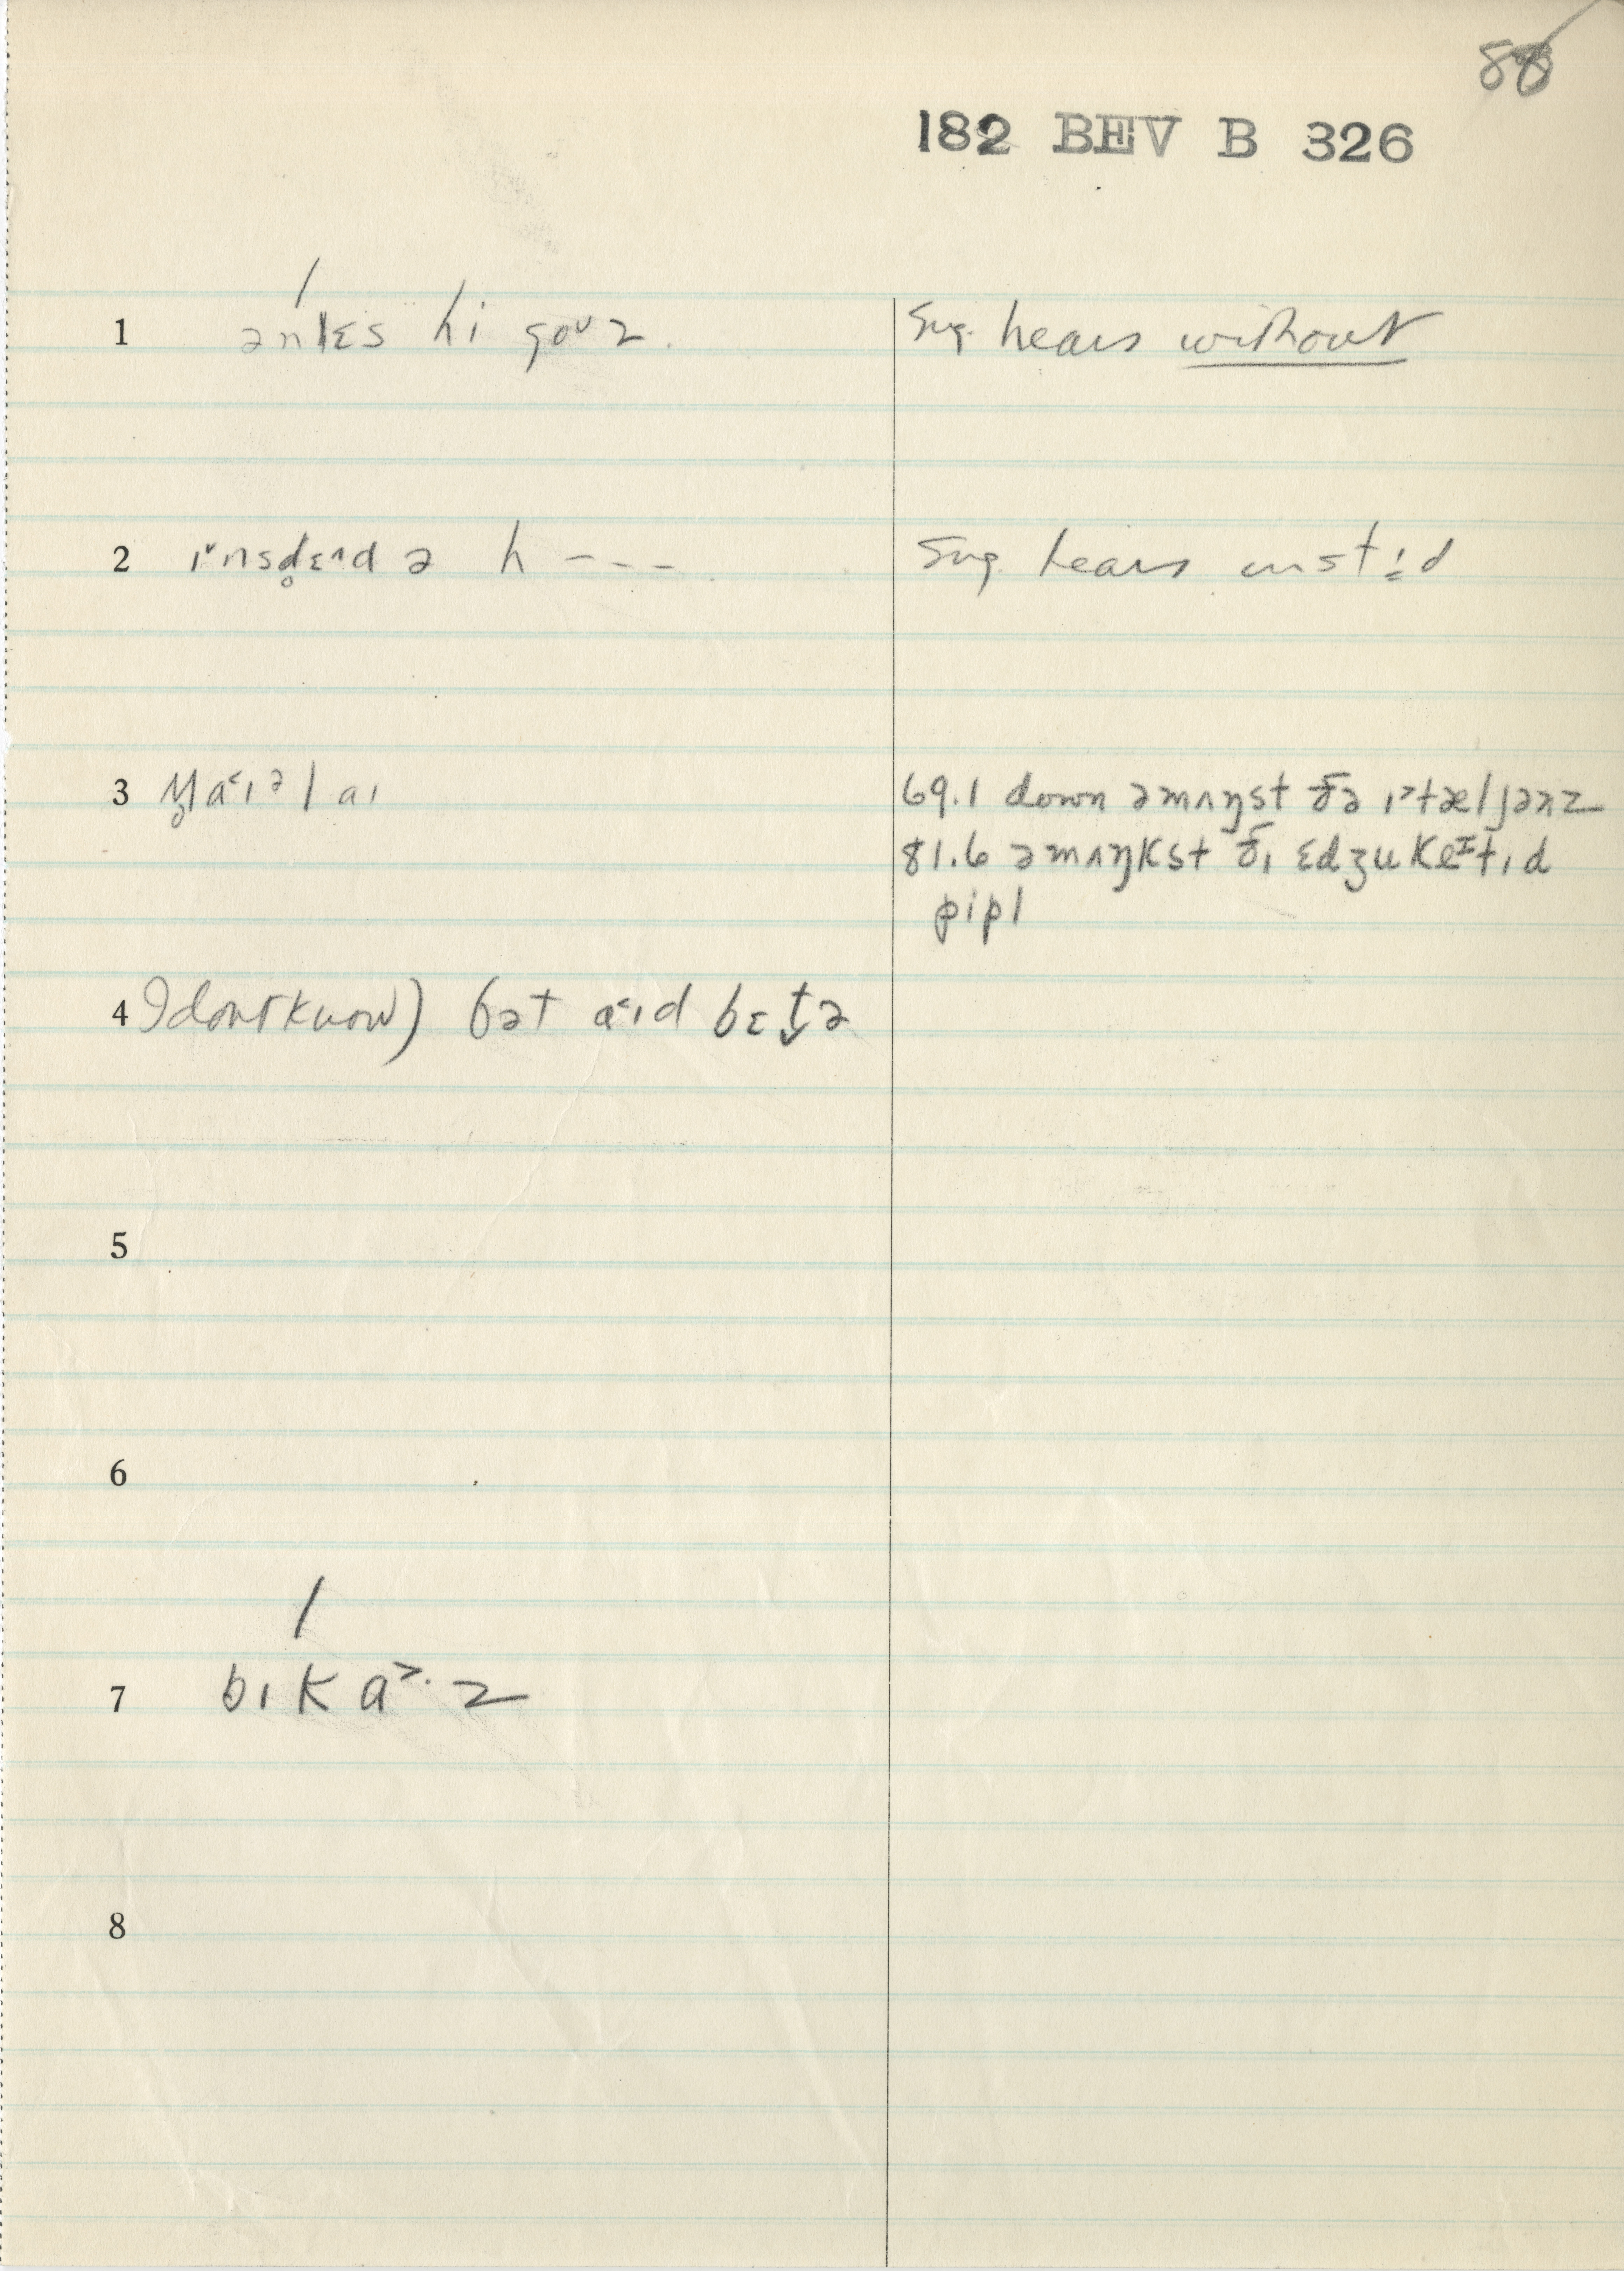 88
182 BEV B 326
1 ənlɛs hi goᴜz. sug. hears without
2 ɪ˅nsd̥ɛɪ^d ə h --- sug. hears instid
3 a˂ɪəl aɪ 69.1 down əmʌŋst ðə ɪ˃tæljənz
81.6 əmʌŋkst ðɪ ɛdʒukeɪtɪd
pipl
4 I don't know) bət a˂ɪd bɛt̬ə
5
6
7 bɪka˃·z
8